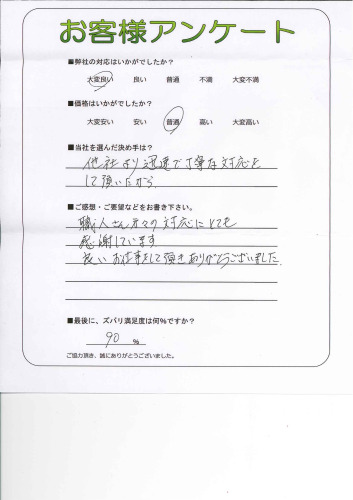 お客様アンケート
■弊社の対応はいかがでしたか？
大変良い 良い 普通 不満 大変不満
■価格はいかがでしたか？
大変安い 安い 普通 高い 大変高い
■当社を選んだ決め手は？
他社より迅速で丁寧な対応を
して頂いたから
■ご感想・ご要望などをお書き下さい。
職人さん方々の対応にとても
感謝しています
良いお仕事をして頂きありがとうございました.
■最後に、ズバリ満足度は何％ですか？
90 %
ご協力頂き、誠にありがとうございました。